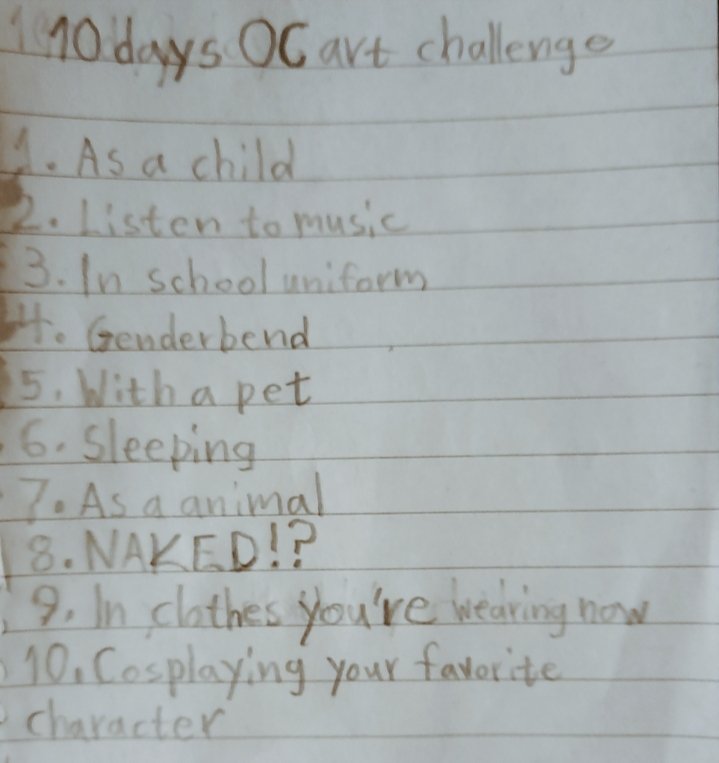 10 days OC art challenge
1. As a child
2. Listen to music
3. In school uniform
4. Genderbend
5. With a pet
6. Sleeping
7. As a animal
8. NAKED!?
9. In clothes you're wearing now
10. Cosplaying your favorite
character